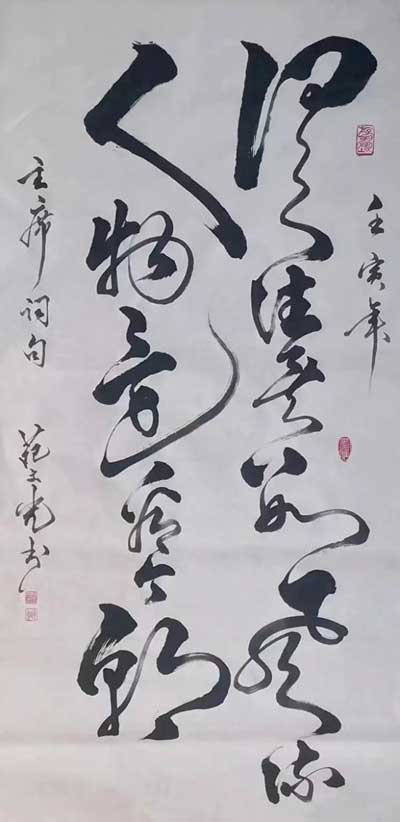 壬寅年
俱往矣数风流
人物还看今朝
主席词句
范文光书